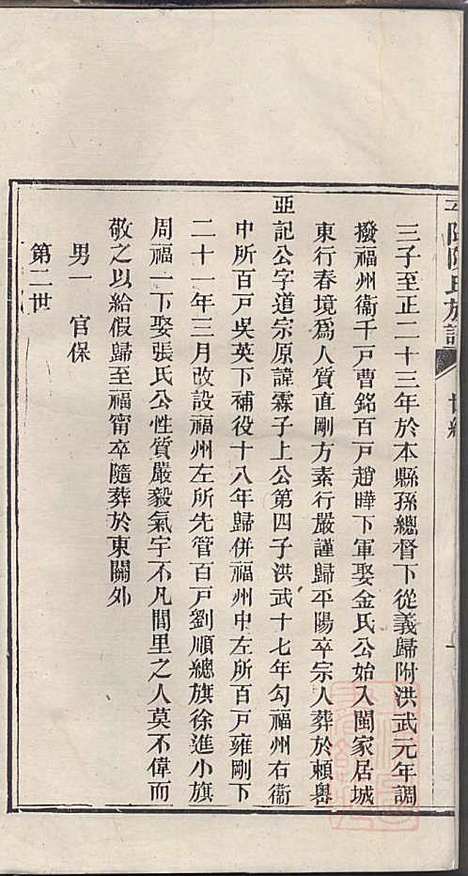 三子至正二十三年於本縣孫總督下從義歸附洪武元年調
撥福州衞千戸曹銘百戸趙曄下軍娶金氏公始入閩家居城
東行春境爲人質直剛方素行嚴謹歸平陽卒宗人葬於賴嶴
亞記公字道宗原諱霖子上公第四子洪武十七年勾福州右衞
中所百戸吳英下補役十八年歸併福州中左所百戸雍剛下
二十一年三月改設福州左所先管百戸劉順總旗徐進小旗
周福一下娶張氏公性質嚴毅氣宇不凡閭里之人莫不偉而
敬之以給假歸至福甯卒隨葬於東關外
男一　官保
第二世